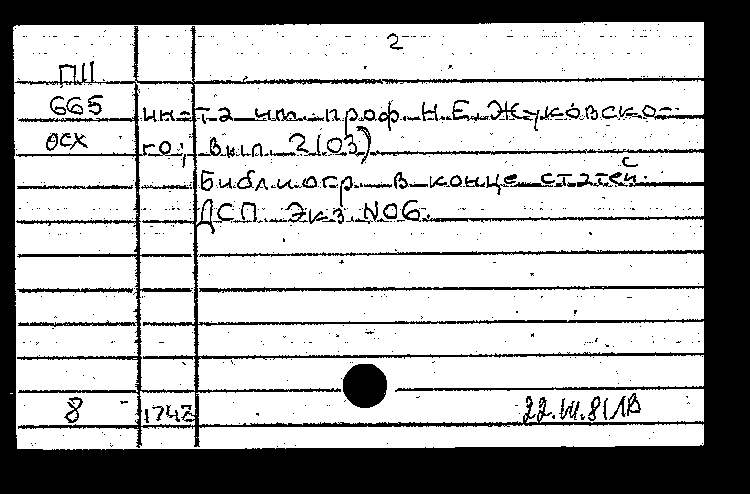 2
П11
665 ин-та им. проф. Н.Е. Жуковско-
осх го; вып. 2(03).
Библиогр. в конце статей.
ДСП Экз. №06.
8 22.VII.81